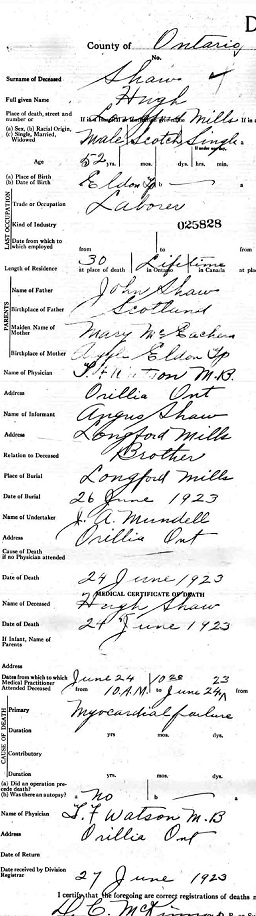 D
County of Ontario
No.
Surname of Deceased Shaw
Full given Name Hugh
Place of death, street and number or Mills If in a
(a) Sex, (b) Racial Origin, (c) Single, Married, Widowed Male Scotch Single a
If under
Age 52 yrs. mos. dys. hrs. min.
(a) Place of Birth
(b) Date of Birth a Eldon Tp b — a
LAST OCCUPATION
Trade or Occupation Laborer
Kind of Industry 025828
Date from which to which employed from to from
Length of Residence 30 at place of death Lifetime in Ontario in Canada at pla
PARENTS
Name of Father John Shaw
Birthplace of Father Scotland
Maiden Name of Mother Mary McEachern
Birthplace of Mother Eldon Tp
Name of Physician M.B.
Address Orillia Ont
Name of Informant Angus Shaw
Address Longford Mills
Relation to Deceased Brother
Place of Burial Longford Mills
Date of Burial 26 June 1923
Name of Undertaker J. A. Mundell
Address Orillia Ont
Cause of Death if no Physician attended
Date of Death 24 June 1923
MEDICAL CERTIFICATE OF DEATH
Name of Deceased Hugh Shaw
Date of Death 24 June 1923
If Infant, Name of Parents
Address
Dates from which to which Medical Practitioner Attended Deceased June 24 23
from 10 A.M. to June 24 from
CAUSE OF DEATH
Primary Myocardial failure
Duration yrs. mos. dys.
Contributory
Duration yrs. mos. dys.
(a) Did an operation precede death?
(b) Was there an autopsy? a No b — a
Name of Physician T. F Watson M.B
Address Orillia Ont
Date of Return
Date received by Division Registrar 27 June 1923
I certify that the foregoing are correct registrations of deaths